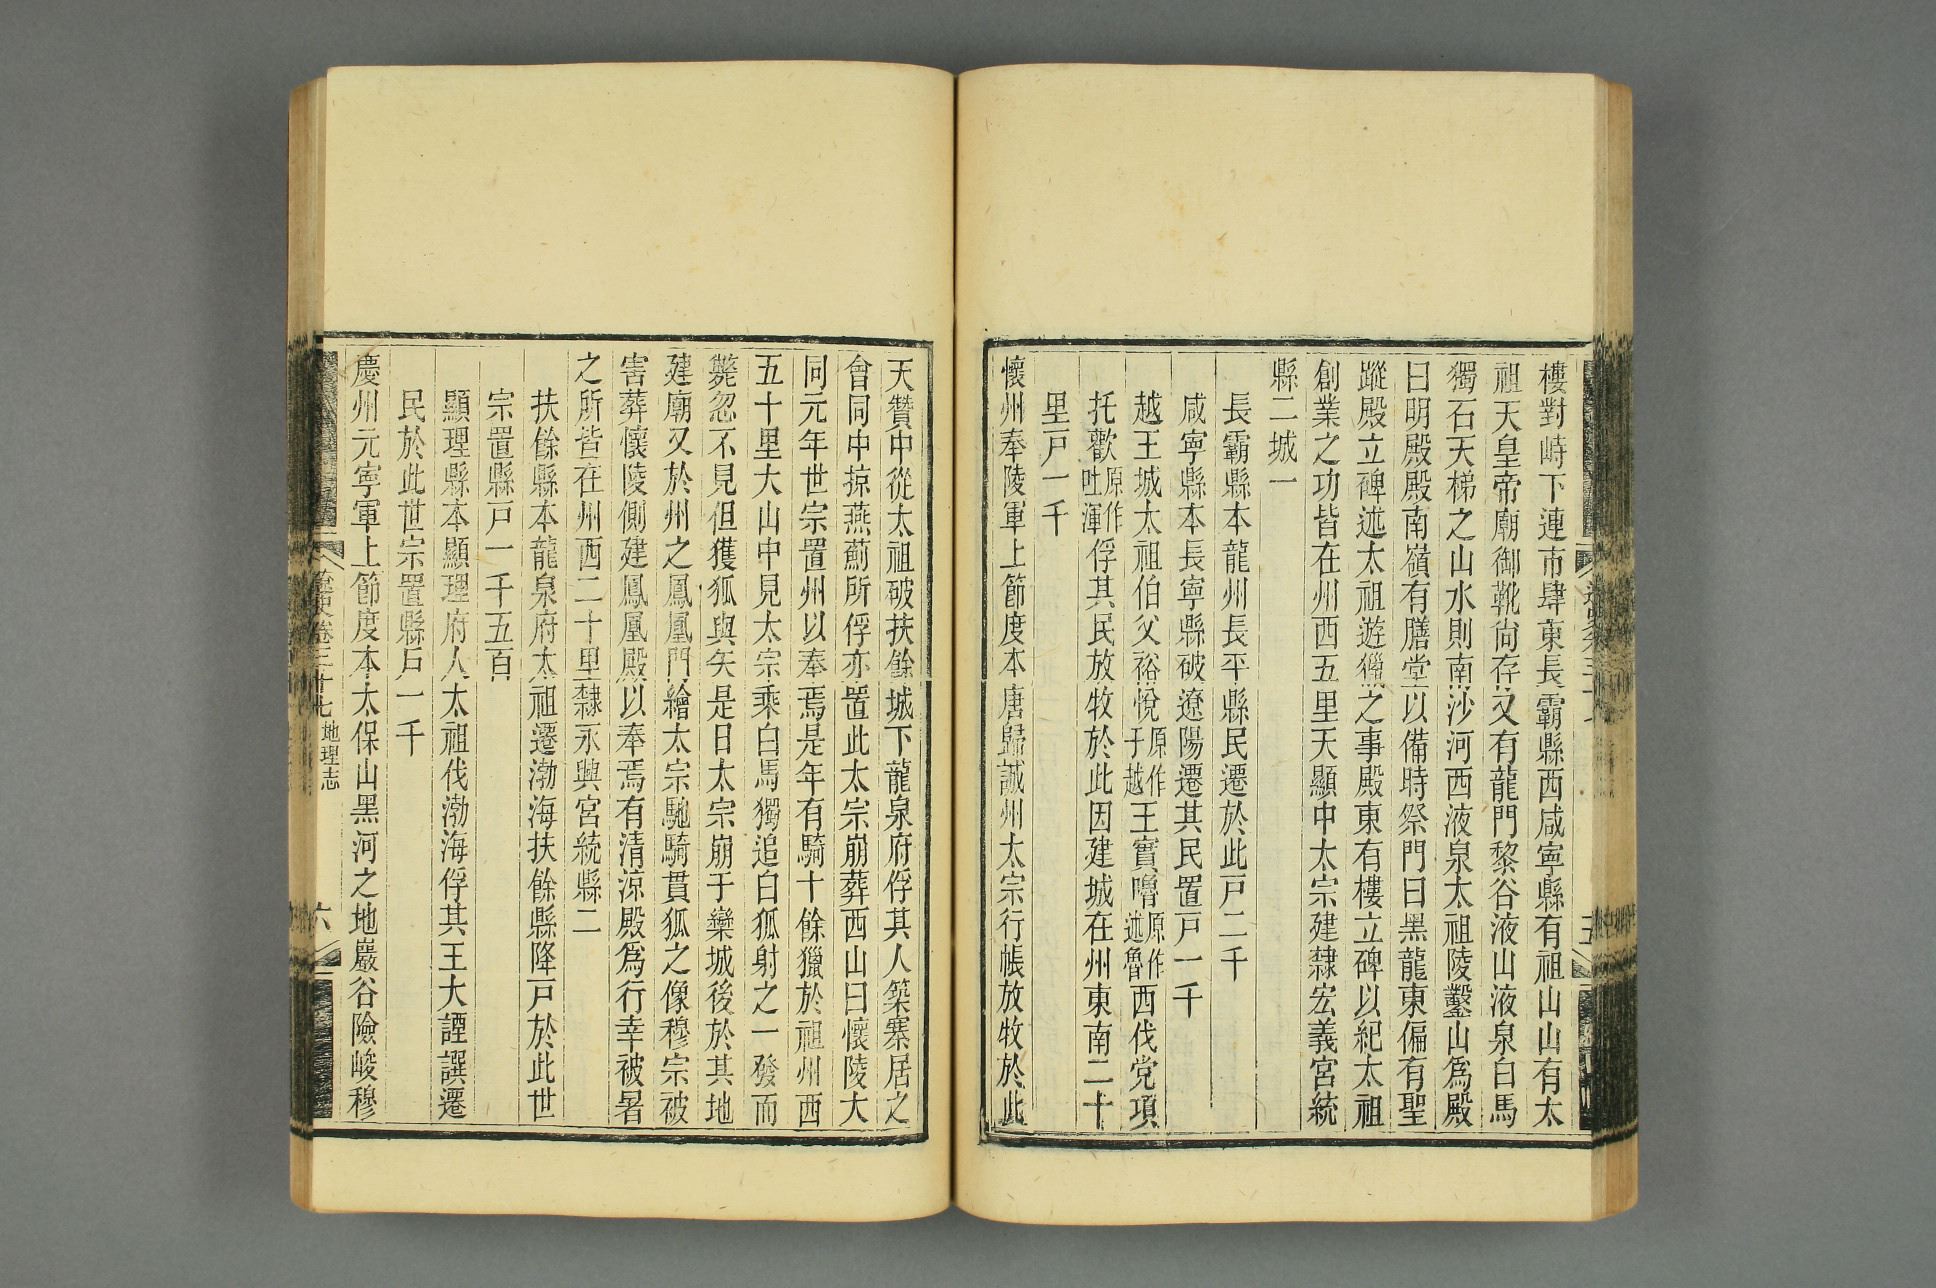 樓對峙下連市肆東長霸縣西咸寧縣有祖山山有太
祖天皇帝廟御靴尚存又有龍門黎谷液山液泉白馬
獨石天梯之山水則南沙河西液泉太祖陵鑿山爲殿
曰明殿殿南嶺有膳堂以備時祭門曰黑龍東偏有聖
蹤殿立碑述太祖遊獵之事殿東有樓立碑以紀太祖
創業之功皆在州西五里天顯中太宗建隸宏義宮統
縣二城一
長霸縣本龍州長平縣民遷於此戸二千
咸寧縣本長寧縣破遼陽遷其民置戸一千
越王城太祖伯父裕悅原作于越王實嚕原作述魯西伐党項
托歡原作吐渾俘其民放牧於此因建城在州東南二十
里戸一千
懷州奉陵軍上節度本唐歸誠州太宗行帳放牧於此
天贊中從太祖破扶餘城下龍泉府俘其人築寨居之
會同中掠燕薊所俘亦置此太宗崩葬西山曰懷陵大
同元年世宗置州以奉焉是年有騎十餘獵於祖州西
五十里大山中見太宗乘白馬獨追白狐射之一發而
斃忽不見但獲狐與矢是日太宗崩于欒城後於其地
建廟又於州之鳳凰門繪太宗馳騎貫狐之像穆宗被
害葬懷陵側建鳳凰殿以奉焉有清涼殿爲行幸被暑
之所皆在州西二十里隸永興宮統縣二
扶餘縣本龍泉府太祖遷渤海扶餘縣降戸於此世
宗置縣戸一千五百
顯理縣本顯理府人太祖伐渤海俘其王大諲譔遷
民於此世宗置縣戸一千
慶州元寧軍上節度本太保山黑河之地巖谷險峻穆
遼史卷三十七 地理志 六